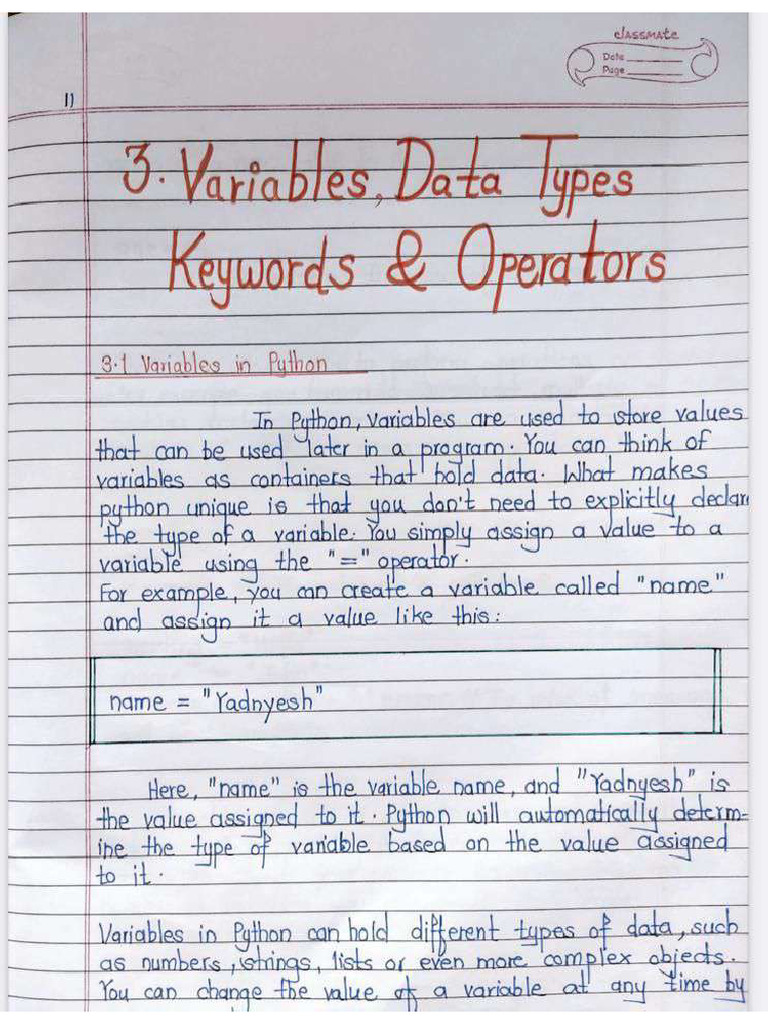 classmate
Date
Page
1)
3. Variables, Data Types
Keywords & Operators
3.1 Variables in Python
In Python, variables are used to store values
that can be used later in a program. You can think of
variables as containers that hold data. What makes
python unique is that you don't need to explicitly declar
the type of a variable. You simply assign a value to a
variable using the "=" operator.
For example, you can create a variable called "name"
and assign it a value like this:
name = "Yadnyesh"
Here, "name" is the variable name, and "Yadnyesh" is
the value assigned to it. Python will automatically determ-
ine the type of variable based on the value assigned
to it.
Variables in Python can hold different types of data, such
as numbers, strings, lists or even more complex objects.
You can change the value of a variable at any time by